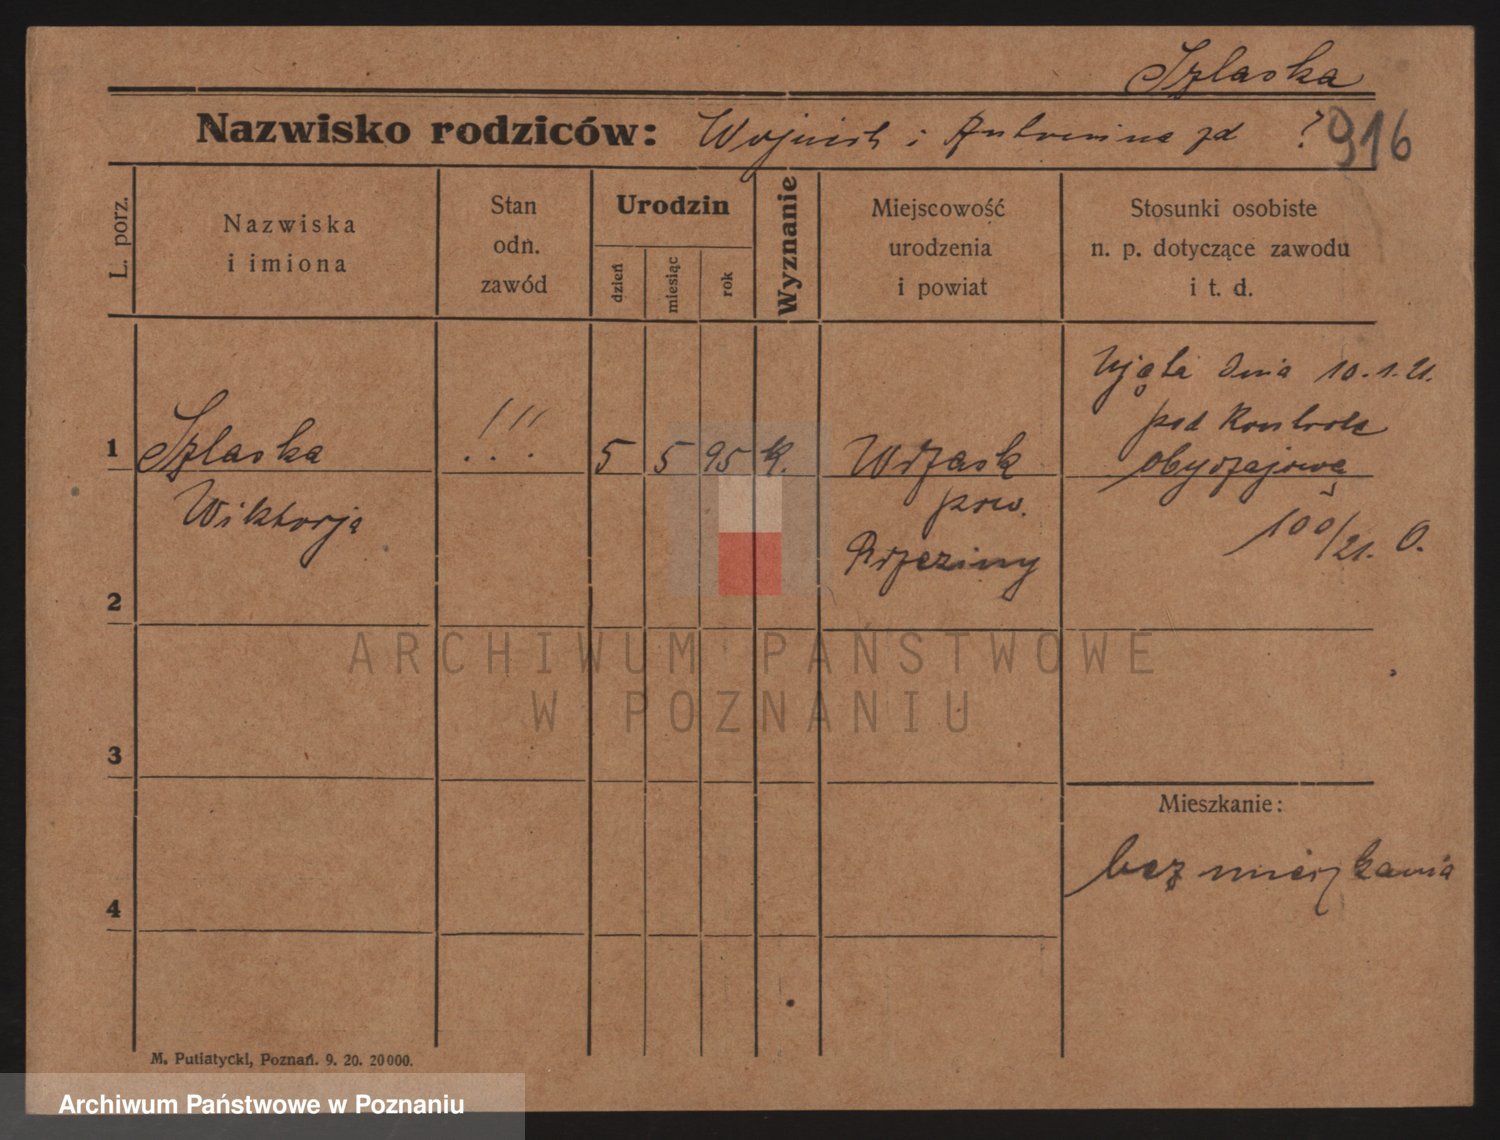 Szlaska
Nazwisko rodziców: Wojciech i Antonina zd ?
916
L. porz.
Nazwiska
i imiona
Stan
odn.
zawód
Urodzin
dzień
miesiąc
rok
Wyznanie
Miejscowość
urodzenia
i powiat
Stosunki osobiste
n. p. dotyczące zawodu
i t. d.
1 Szlaska !!! 5 5 95 k. Wrzask
Wiktorja
pow.
Brzeziny
Ujęta dnia 10.1.21.
pod kontrolę
obyczajową
100/21. O.
2
ARCHIWUM PAŃSTWOWE
W POZNANIU
3
Mieszkanie:
bez mieszkania
4
M. Putiatycki, Poznań. 9. 20. 20000.
Archiwum Państwowe w Poznaniu